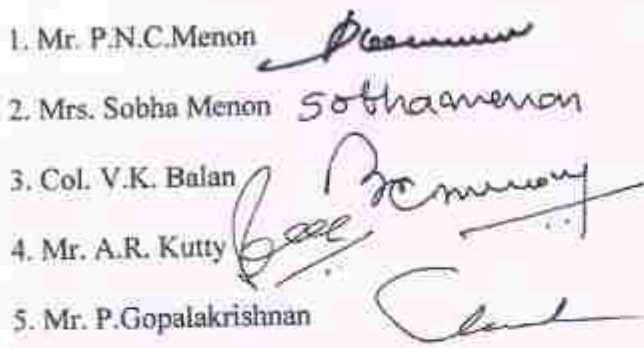 1. Mr. P.N.C.Menon
2. Mrs. Sobha Menon Sobhaamenon
3. Col. V.K. Balan
4. Mr. A.R. Kutty
5. Mr. P.Gopalakrishnan